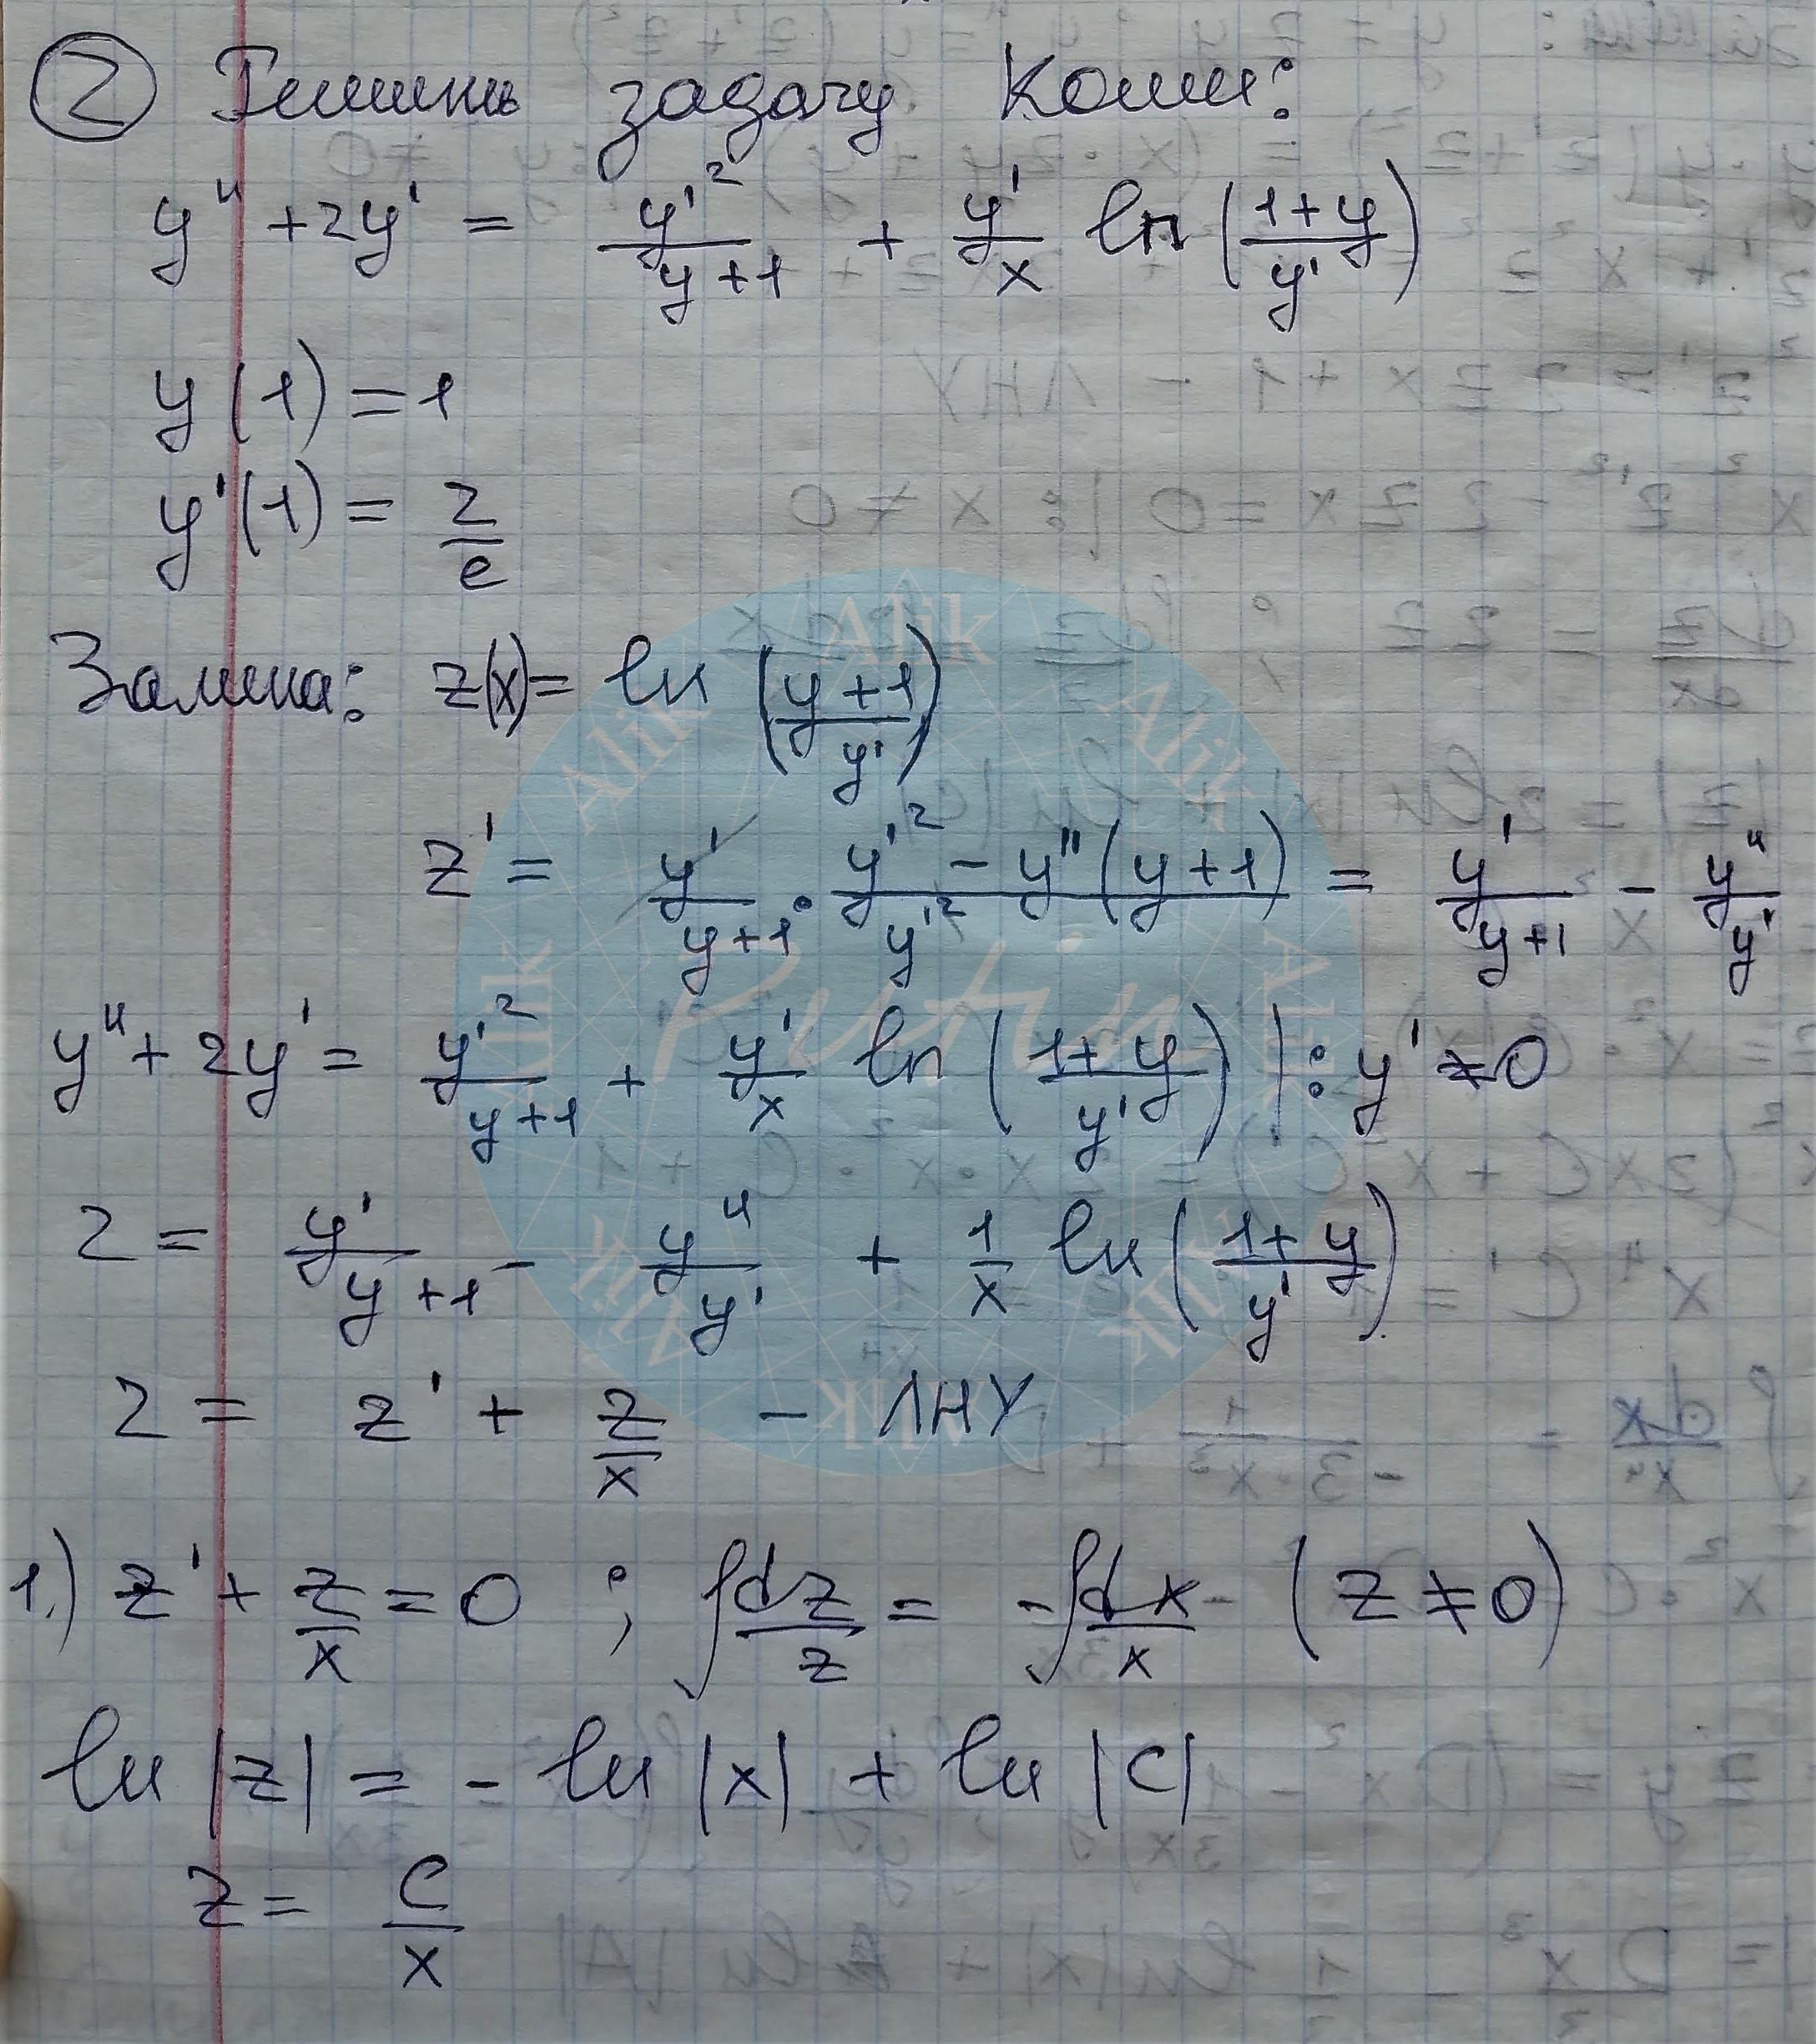 ② Решить задачу Коши:
y'' + 2y' = y'²/(y+1) + y'/x ln((1+y)/y')
y(1) = 1
y'(1) = 2/e
Замена: z(x) = ln((y+1)/y')
z' = y'/(y+1) · (y'² - y''(y+1))/y'² = y'/(y+1) - y''/y'
y'' + 2y' = y'²/(y+1) + y'/x ln((1+y)/y') | : y' ≠ 0
2 = y'/(y+1) - y''/y' + 1/x ln((1+y)/y')
2 = z' + z/x - ЛНУ
1.) z' + z/x = 0 ; ∫dz/z = -∫dx/x (z ≠ 0)
ln |z| = - ln |x| + ln |C|
z = C/x
Alik
Alik
Alik
Alik
Alik
Alik
Alik
Alik
Putin